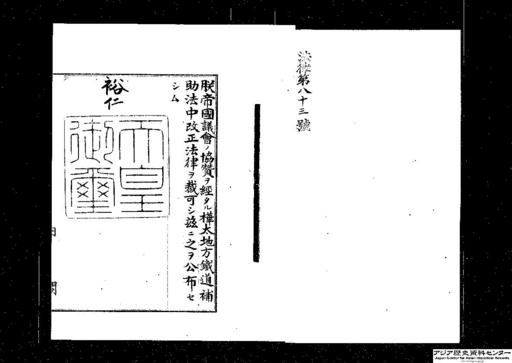 法律第八十三號
朕帝國議會ノ協賛ヲ經タル樺太地方鐵道補
助法中改正法律ヲ裁可シ茲ニ之ヲ公布セ
シム
裕仁
天皇
御璽
アジア歴史資料センター
Japan Center for Asian Historical Records